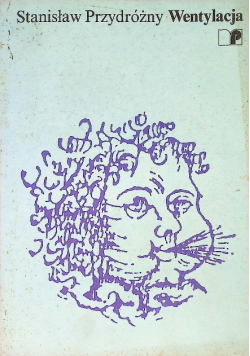 Stanisław Przydróżny Wentylacja